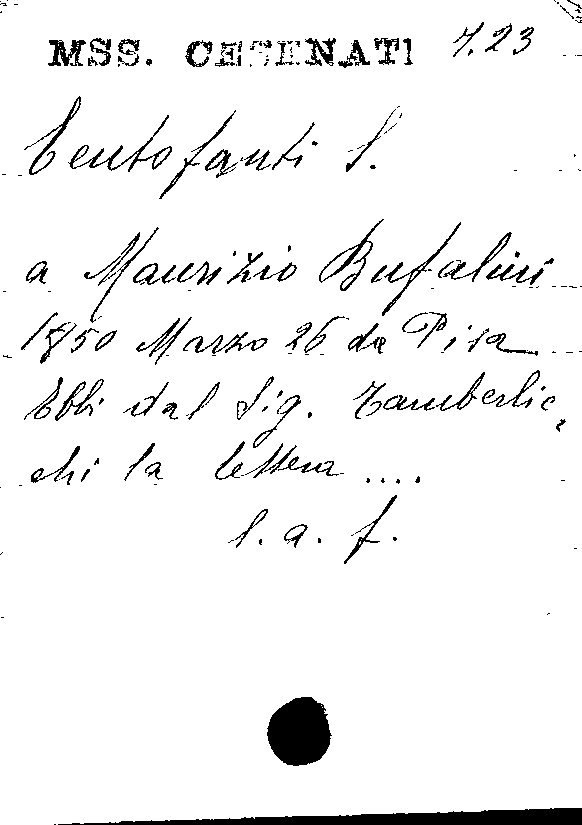 MSS. CESENATI 7.23
Centofanti S.
a Maurizio Bufalini
1850 Marzo 26 da Pisa
Ebbi dal Sig. Tamberlic,
chi la lettera ....
l. a. f.